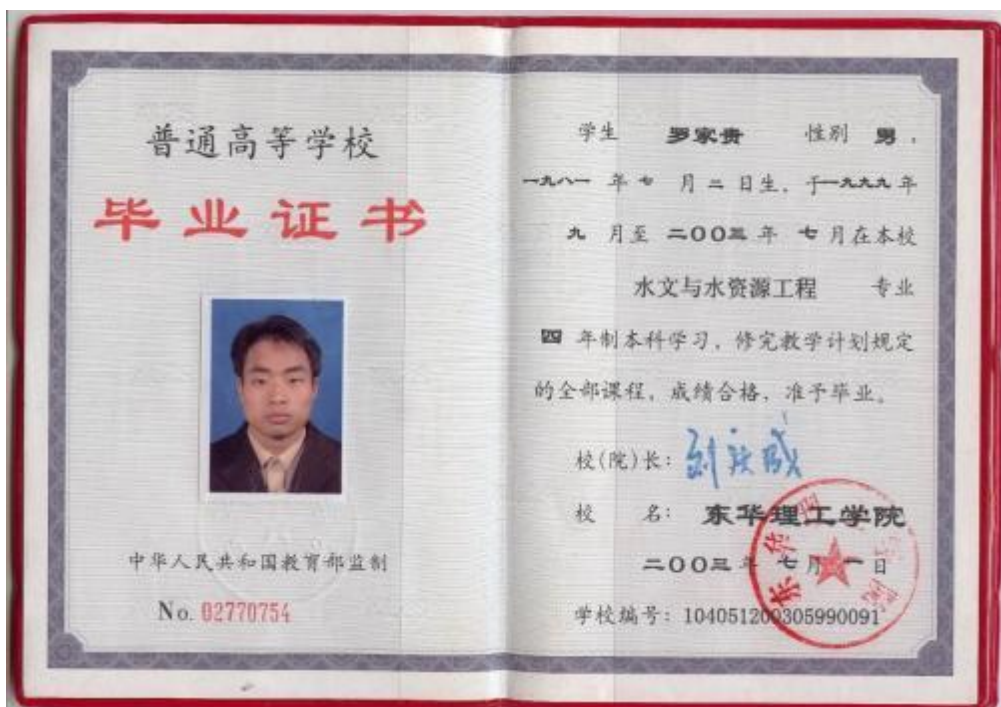 普通高等学校
毕业证书
中华人民共和国教育部监制
No. 02770754
学生 罗家贵 性别 男，
一九八一 年 七 月 二 日生，于一九九九年
九 月至 二00三 年 七 月在本校
水文与水资源工程 专业
四 年制本科学习，修完教学计划规定
的全部课程，成绩合格，准予毕业。
校(院)长：刘庆成
校 名：东华理工学院
二00三 年 七 月 一 日
学校编号：104051200305990091